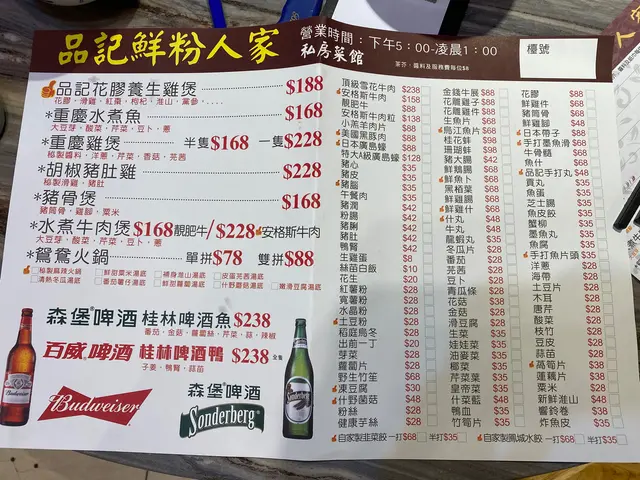 品記鮮粉人家
私房菜館
營業時間：下午5：00-凌晨1：00
茶芥，醬料及服務費每位$8
檯號
品記花膠養生雞煲 $188
花膠，滑雞，紅棗，枸杞，淮山，黨參，....
*重慶水煮魚 $168
大豆芽，酸菜，芹菜，豆卜，蔥
*重慶雞煲 半隻$168 一隻$228
秘製醬料，洋蔥，芹菜，香菇，芫茜
*胡椒豬肚雞 $228
秘製滑雞，豬肚
*豬骨煲 $168
豬筒骨，雞腳，粟米
*水煮牛肉煲$168靚肥牛/$228安格斯牛肉
大豆芽，酸菜，芹菜，豆卜，蔥
*鴛鴦火鍋 單拼$78 雙拼$88
秘製麻辣火鍋
鮮甜粟米湯底
補身淮山湯底
皮蛋芫茜湯底
清熱冬瓜湯底
番茄薯仔湯底
鮮甜蘿蔔湯底
什野蘑菇湯底
嫩滑豆腐湯底
森堡啤酒 桂林啤酒魚$238
番茄，金菇，蘿蔔絲，芹菜，蒜，辣椒
百威啤酒 桂林啤酒鴨 $238 全隻
子姜，鴨腎，蒜苗
Budweiser
森堡啤酒
Sonderberg
頂級雪花牛肉 $238
安格斯牛肉 $158
靚肥牛 $88
安格斯牛肉粒 $138
小羔羊肉片 $88
美國黑豚肉 $88
日本廣島蠔 $68
特大A級廣島蠔 $128
豬心 $35
豬皮 $35
豬腦 $35
午餐肉 $35
豬潤 $42
粉腸 $42
豬脷 $42
豬肚 $42
鴨腎 $42
生雞蛋 $8
絲苗白飯 $10
花豆 $20
紅薯粉 $28
寬薯粉 $28
水晶粉 $28
土豆粉 $28
稻庭烏冬 $28
出前一丁 $20
芽菜 $28
蘿蔔 $28
野生竹笙 $68
凍豆腐 $30
什野菌菇 $48
粉絲 $28
健康芋絲 $28
自家製韭菜餃 一打$68 半打$35
金錢牛展 $88
花雕雞子 $88
花雕雞件 $88
生魚片 $68
烏江魚片 $68
桂花蚌 $98
珊瑚蚌 $98
豬大腸 $42
鮮鵝腸 $68
鮮魚卜 $68
黑椒葉 $68
鮮雞肶 $68
鮮雞什 $68
牛什 $48
牛丸 $48
龍蝦丸 $35
冬瓜片 $28
番茄 $28
芫茜 $28
豆卜 $28
青瓜條 $28
花菇 $38
金菇 $28
滑豆腐 $28
生菜 $28
娃娃菜 $28
油麥菜 $35
椰菜 $35
芹菜葉 $35
皇帝菜 $35
什菜籃 $48
鴨血 $35
竹筒片 $35
自家製鳳城水餃 一打$68 半打$35
花膠 $88
鮮雞件 $68
豬筒骨 $68
鮮雞腳 $48
日本帶子 $88
手打墨魚滑 $68
牛骨髓 $68
魚什 $68
品記手打丸 $48
貢丸 $35
魚蛋 $35
芝士腸 $35
魚皮餃 $35
蟹柳 $35
墨魚丸 $35
魚腐 $35
手打魚片頭 $35
洋蔥 $28
海帶 $28
土豆片 $28
木耳 $28
唐芹 $28
酸菜 $28
枝竹 $28
豆皮 $28
蒜苗 $28
萵筍片 $38
蓮藕片 $38
粟米 $28
新鮮淮山 $48
響鈴卷 $38
炸魚皮 $35